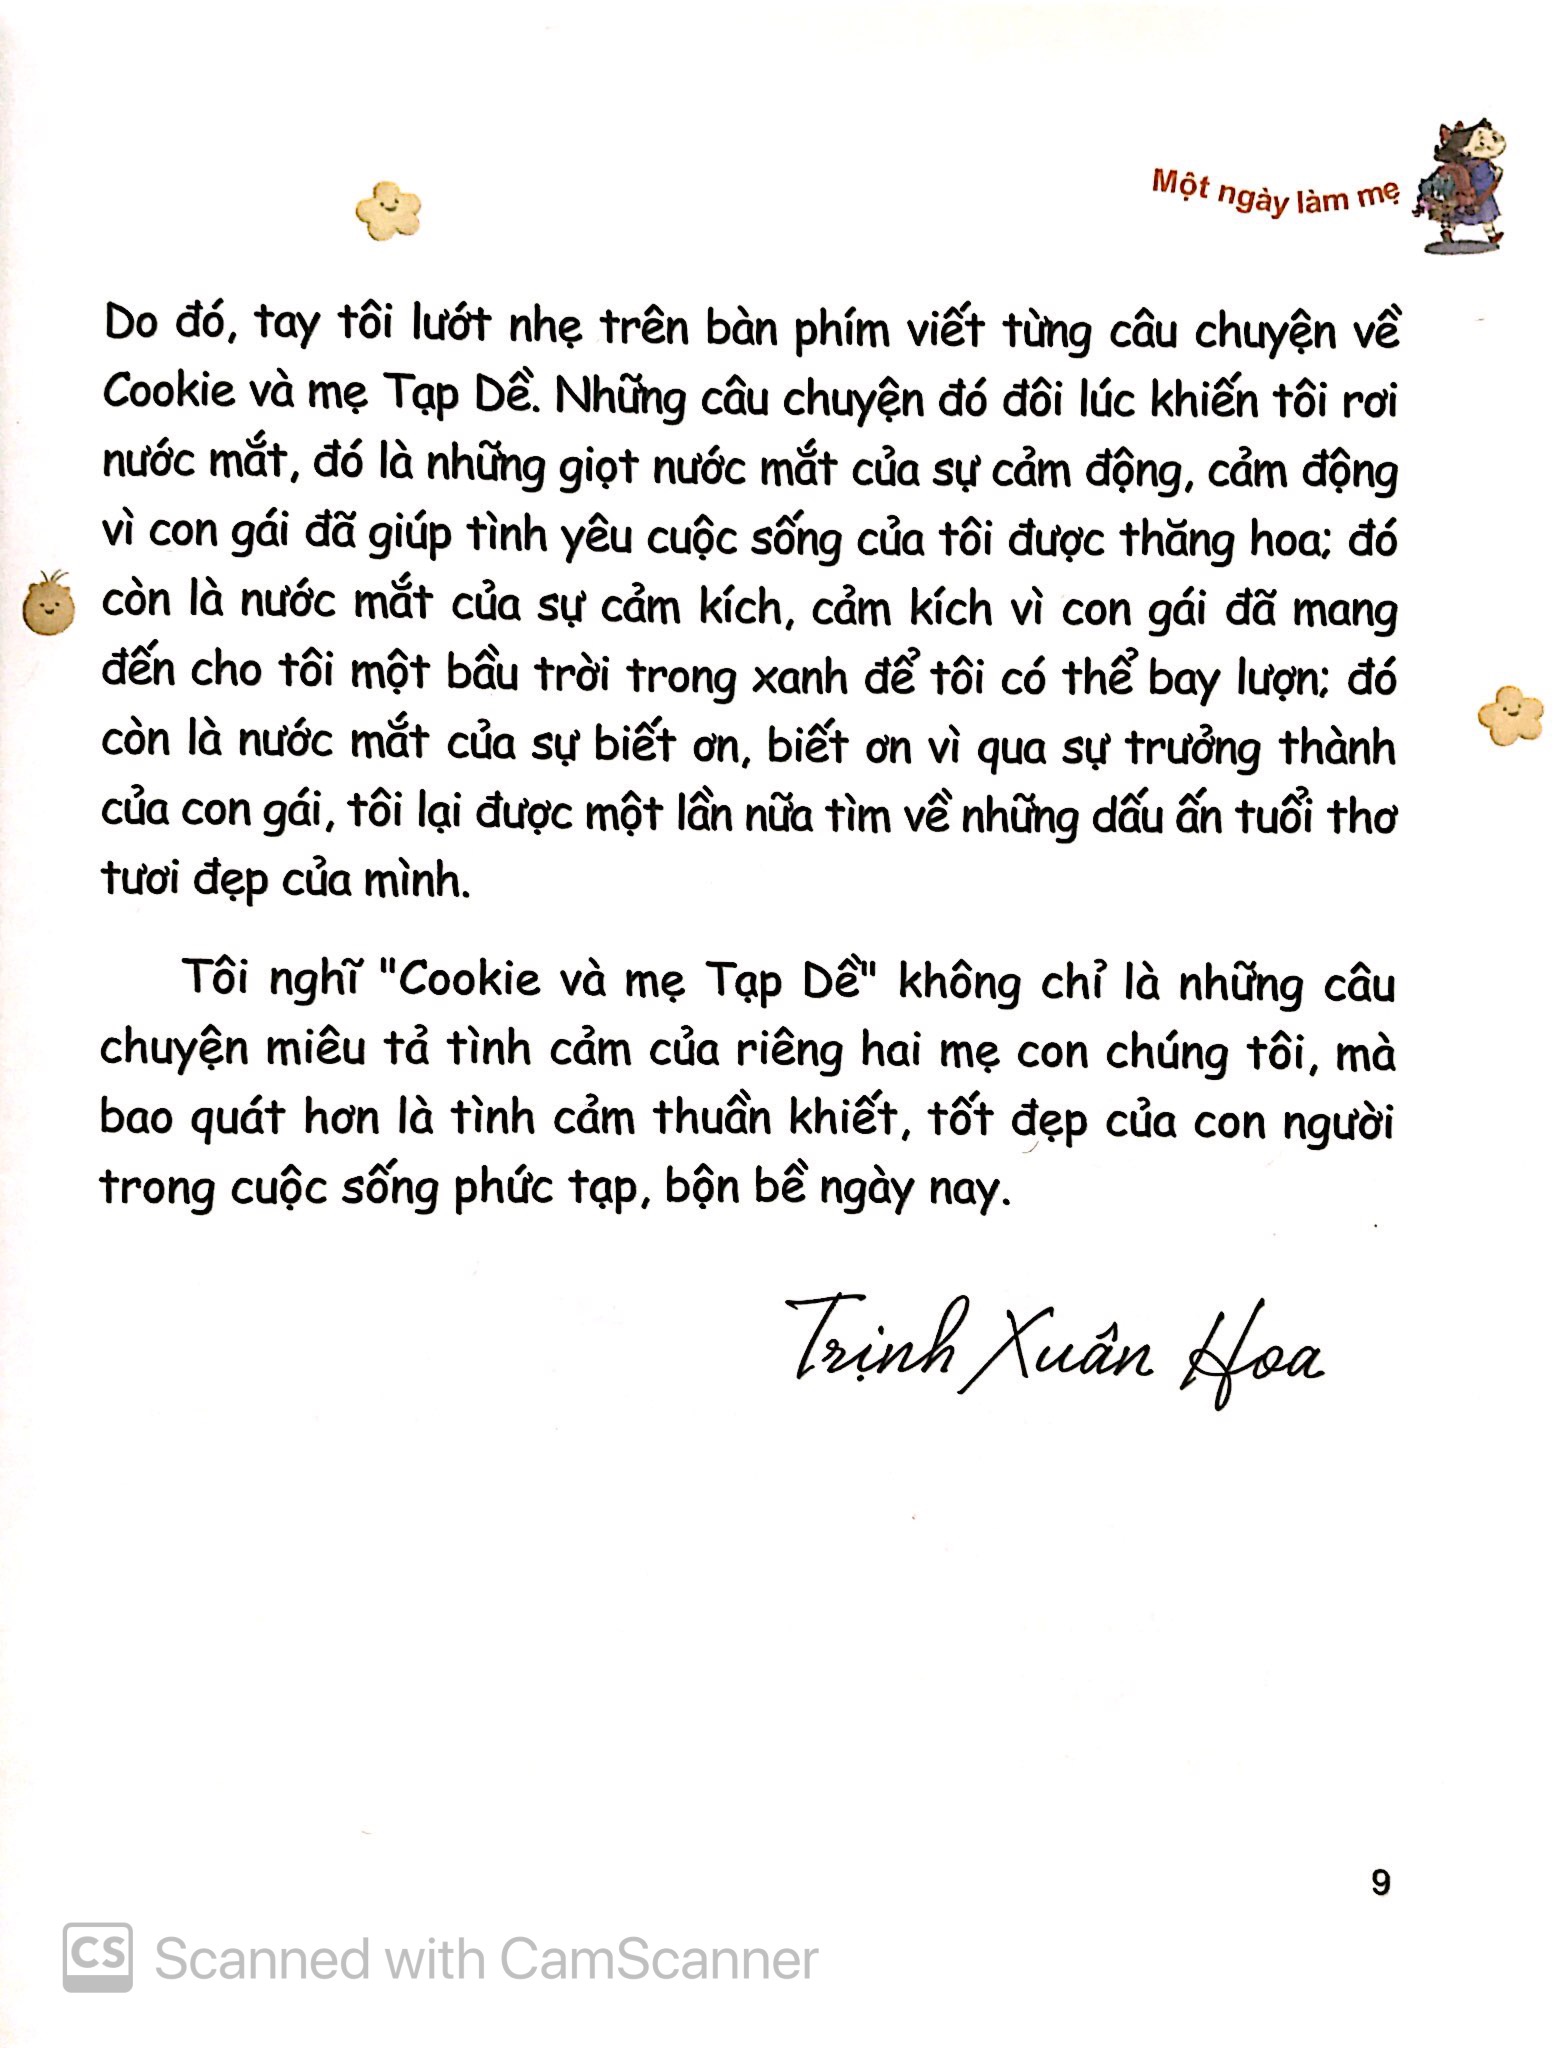 Một ngày làm mẹ
Do đó, tay tôi lướt nhẹ trên bàn phím viết từng câu chuyện về
Cookie và mẹ Tạp Dề. Những câu chuyện đó đôi lúc khiến tôi rơi
nước mắt, đó là những giọt nước mắt của sự cảm động, cảm động
vì con gái đã giúp tình yêu cuộc sống của tôi được thăng hoa; đó
còn là nước mắt của sự cảm kích, cảm kích vì con gái đã mang
đến cho tôi một bầu trời trong xanh để tôi có thể bay lượn; đó
còn là nước mắt của sự biết ơn, biết ơn vì qua sự trưởng thành
của con gái, tôi lại được một lần nữa tìm về những dấu ấn tuổi thơ
tươi đẹp của mình.
Tôi nghĩ "Cookie và mẹ Tạp Dề" không chỉ là những câu
chuyện miêu tả tình cảm của riêng hai mẹ con chúng tôi, mà
bao quát hơn là tình cảm thuần khiết, tốt đẹp của con người
trong cuộc sống phức tạp, bộn bề ngày nay.
Trịnh Xuân Hoa
9
CS Scanned with CamScanner